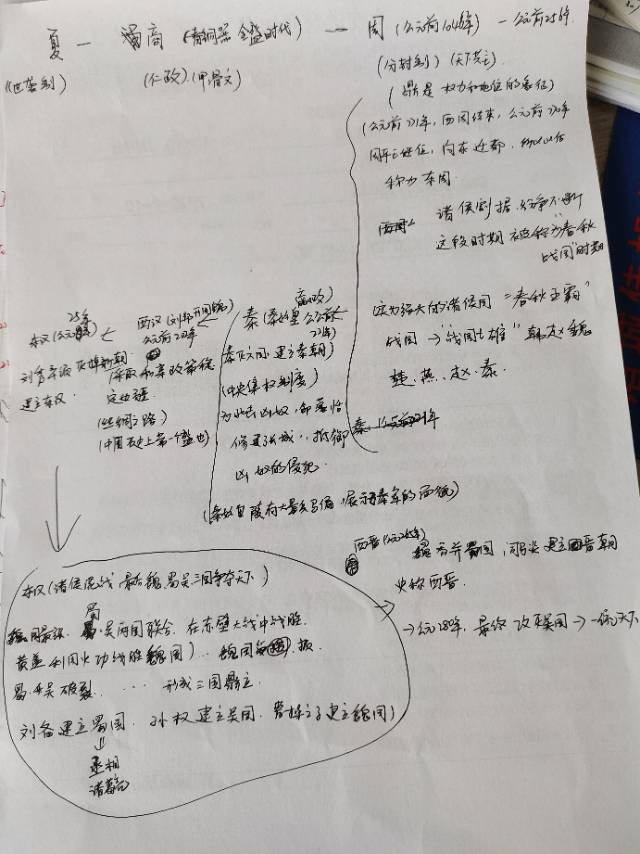 夏 — 商 (青铜器 全盛时代) — 周 (公元前1046年) — 公元前256年
(世袭制) (仁政) (甲骨文) (分封制) (天下共主)
(鼎是 权力和地位的象征)
(公元前771年, 西周结束, 公元前770年
周平王继位, 向东迁都, 所以以后
称为东周
诸侯割据 纷争不断
这段时期 被称为"春秋
战国"时期
较为强大的诸侯国 "春秋五霸"
战国 → "战国七雄" 韩赵魏
楚、燕、赵、秦
嬴政
秦(秦始皇 公元前
221年)
秦灭六国 建立秦朝
(中央集权制度)
修建长城, 抵御
匈奴的侵犯
(秦始皇陵有大量兵马俑, 展示秦军的面貌)
西汉 (刘邦开国皇帝)
公元前202年
(丝绸之路)
(中国历史上第一个盛世)
25年
东汉(公元
建立东汉
东汉 (诸侯混战 最后魏蜀吴三国争夺天下)
蜀
吴两国联合, 在赤壁大战中战胜
黄盖利用火攻战胜魏国)
蜀、吴破裂 …… 形成三国鼎立
刘备建立蜀国 孙权建立吴国 曹操之子建立魏国)
丞相
诸葛亮
西晋(公元265年)
魏吞并蜀国, 司马炎建立西晋朝
史称西晋
→ 公元280年, 最终攻灭吴国 → 一统天下